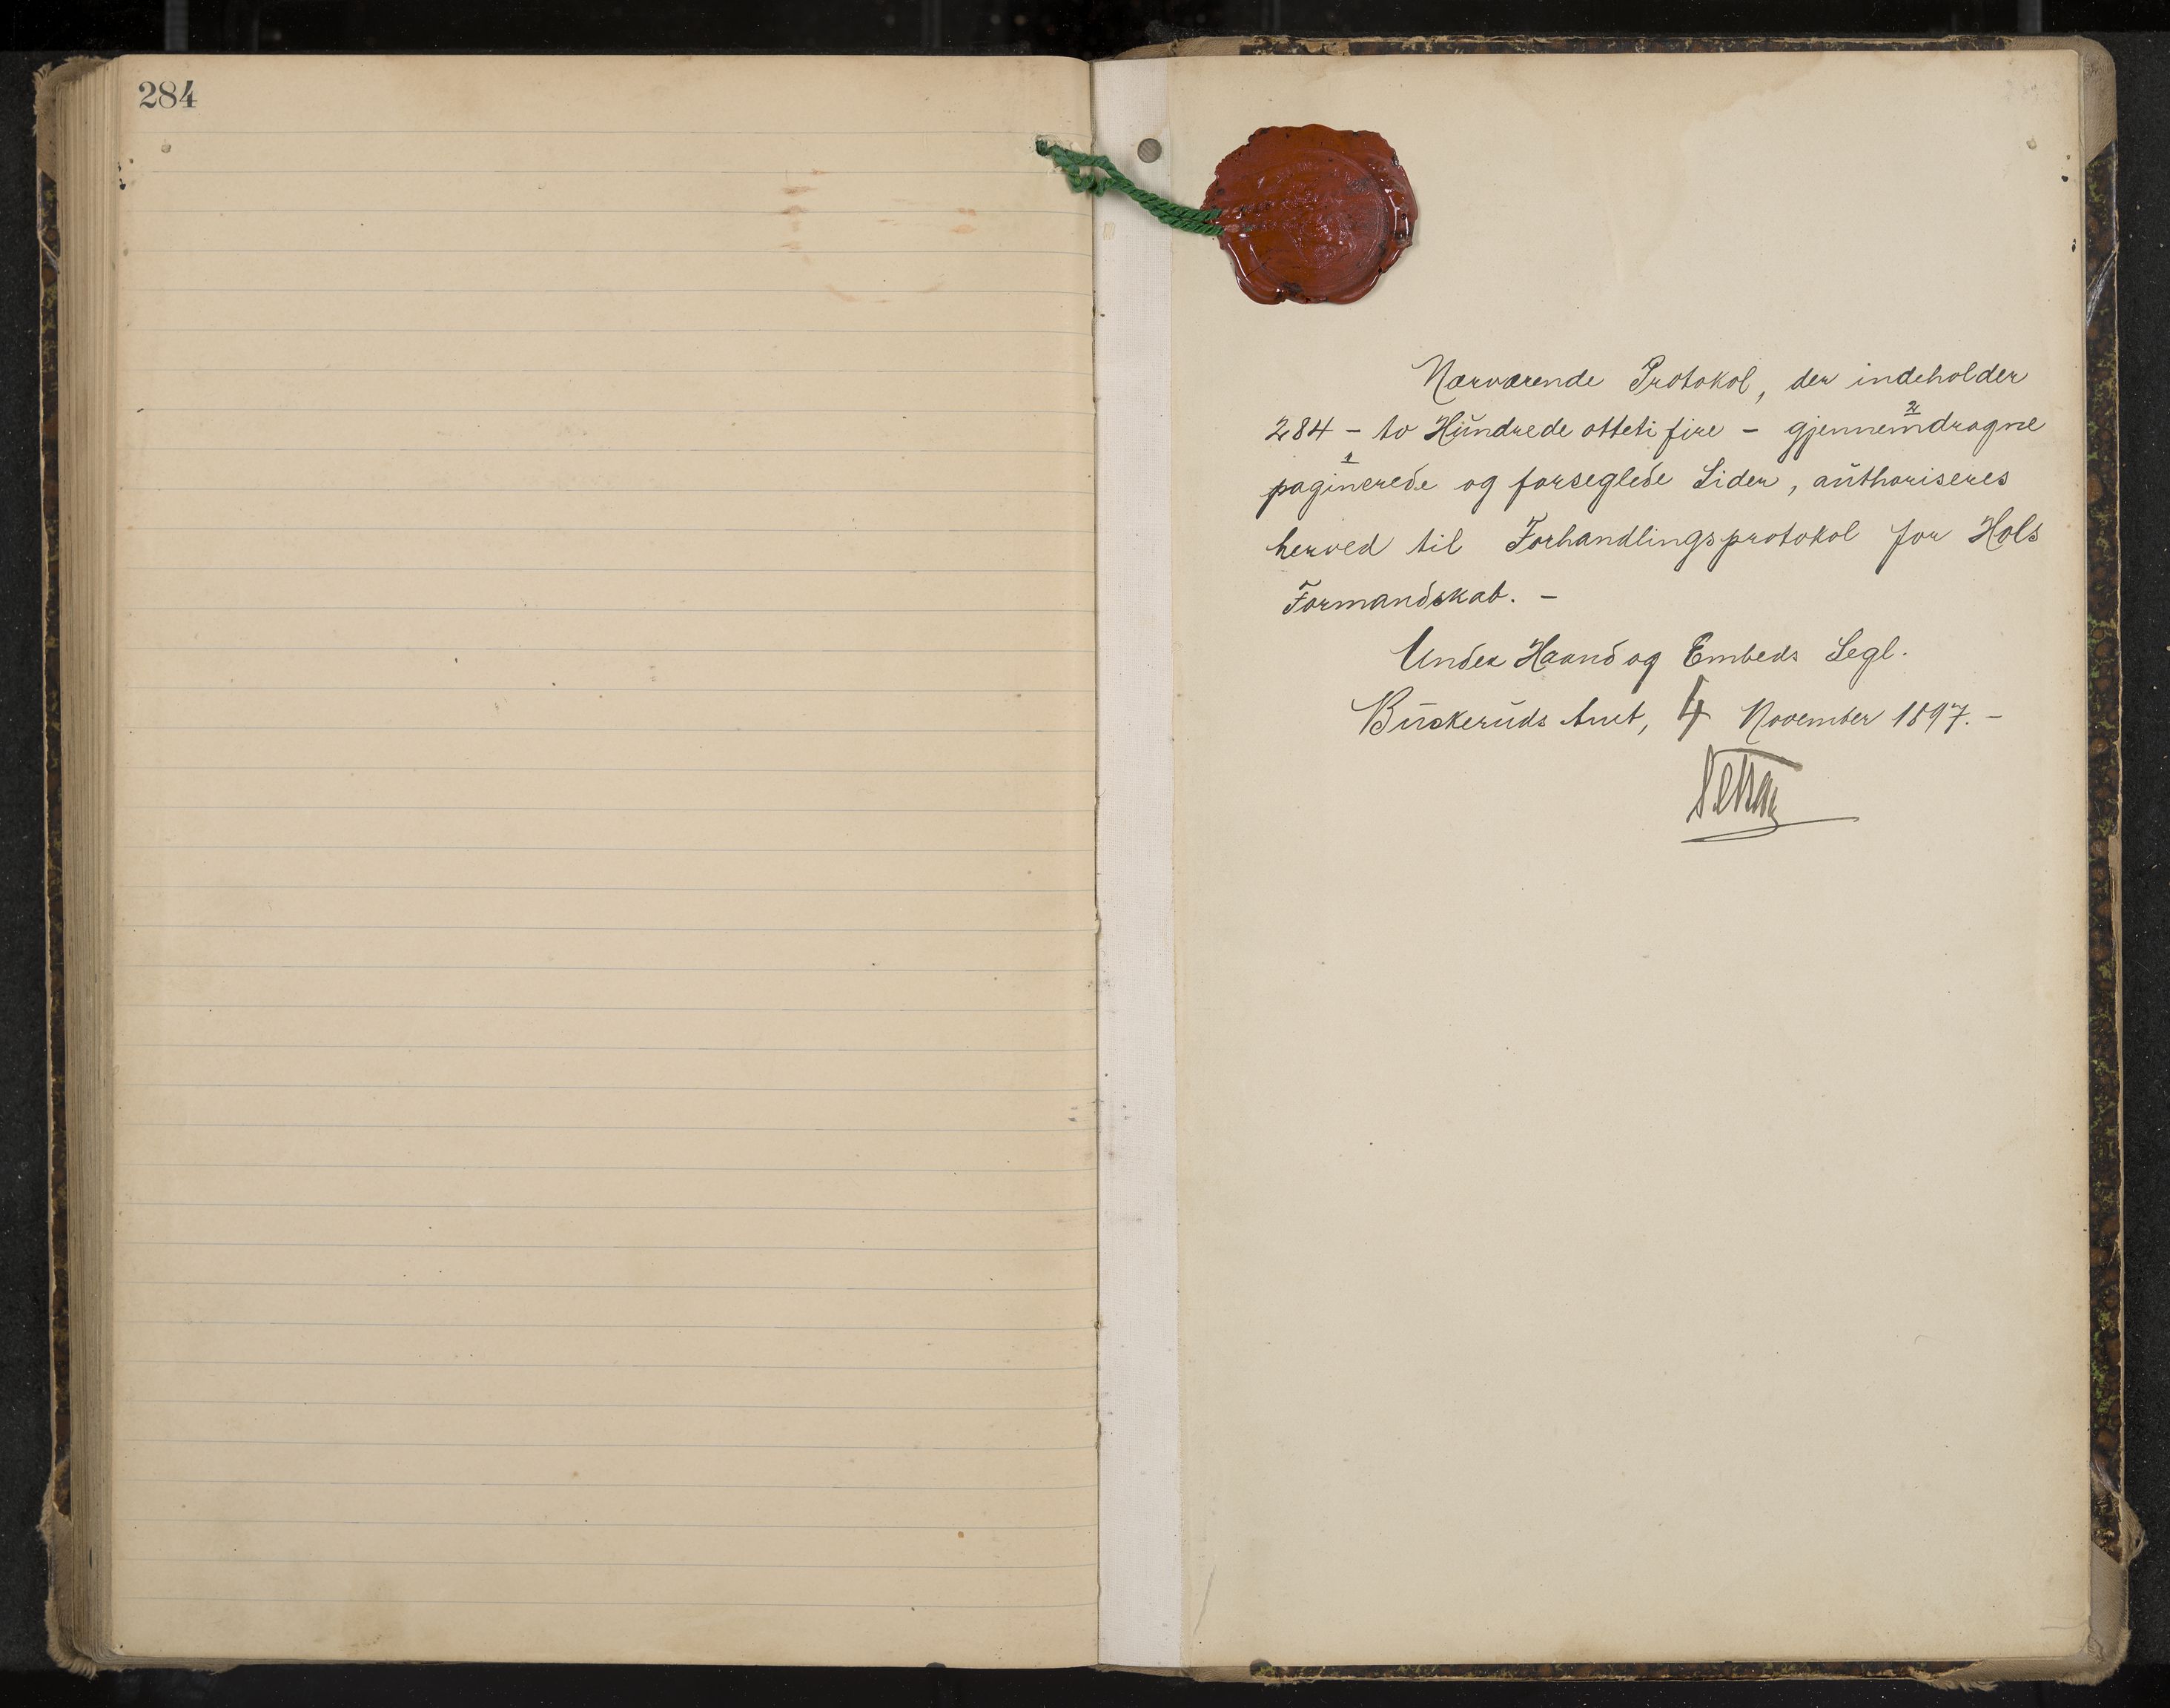 284
Nærværende Protokol, der indeholder
284 – to Hundrede otteti fire – gjennemdragne
2
paginerede og forseglede Sider, authoriseres
1
herved til Forhandlingsprotokol for Hols
Formandskab. –
Under Haand og Embeds Segl.
Buskeruds Amt, 4 November 1897. –